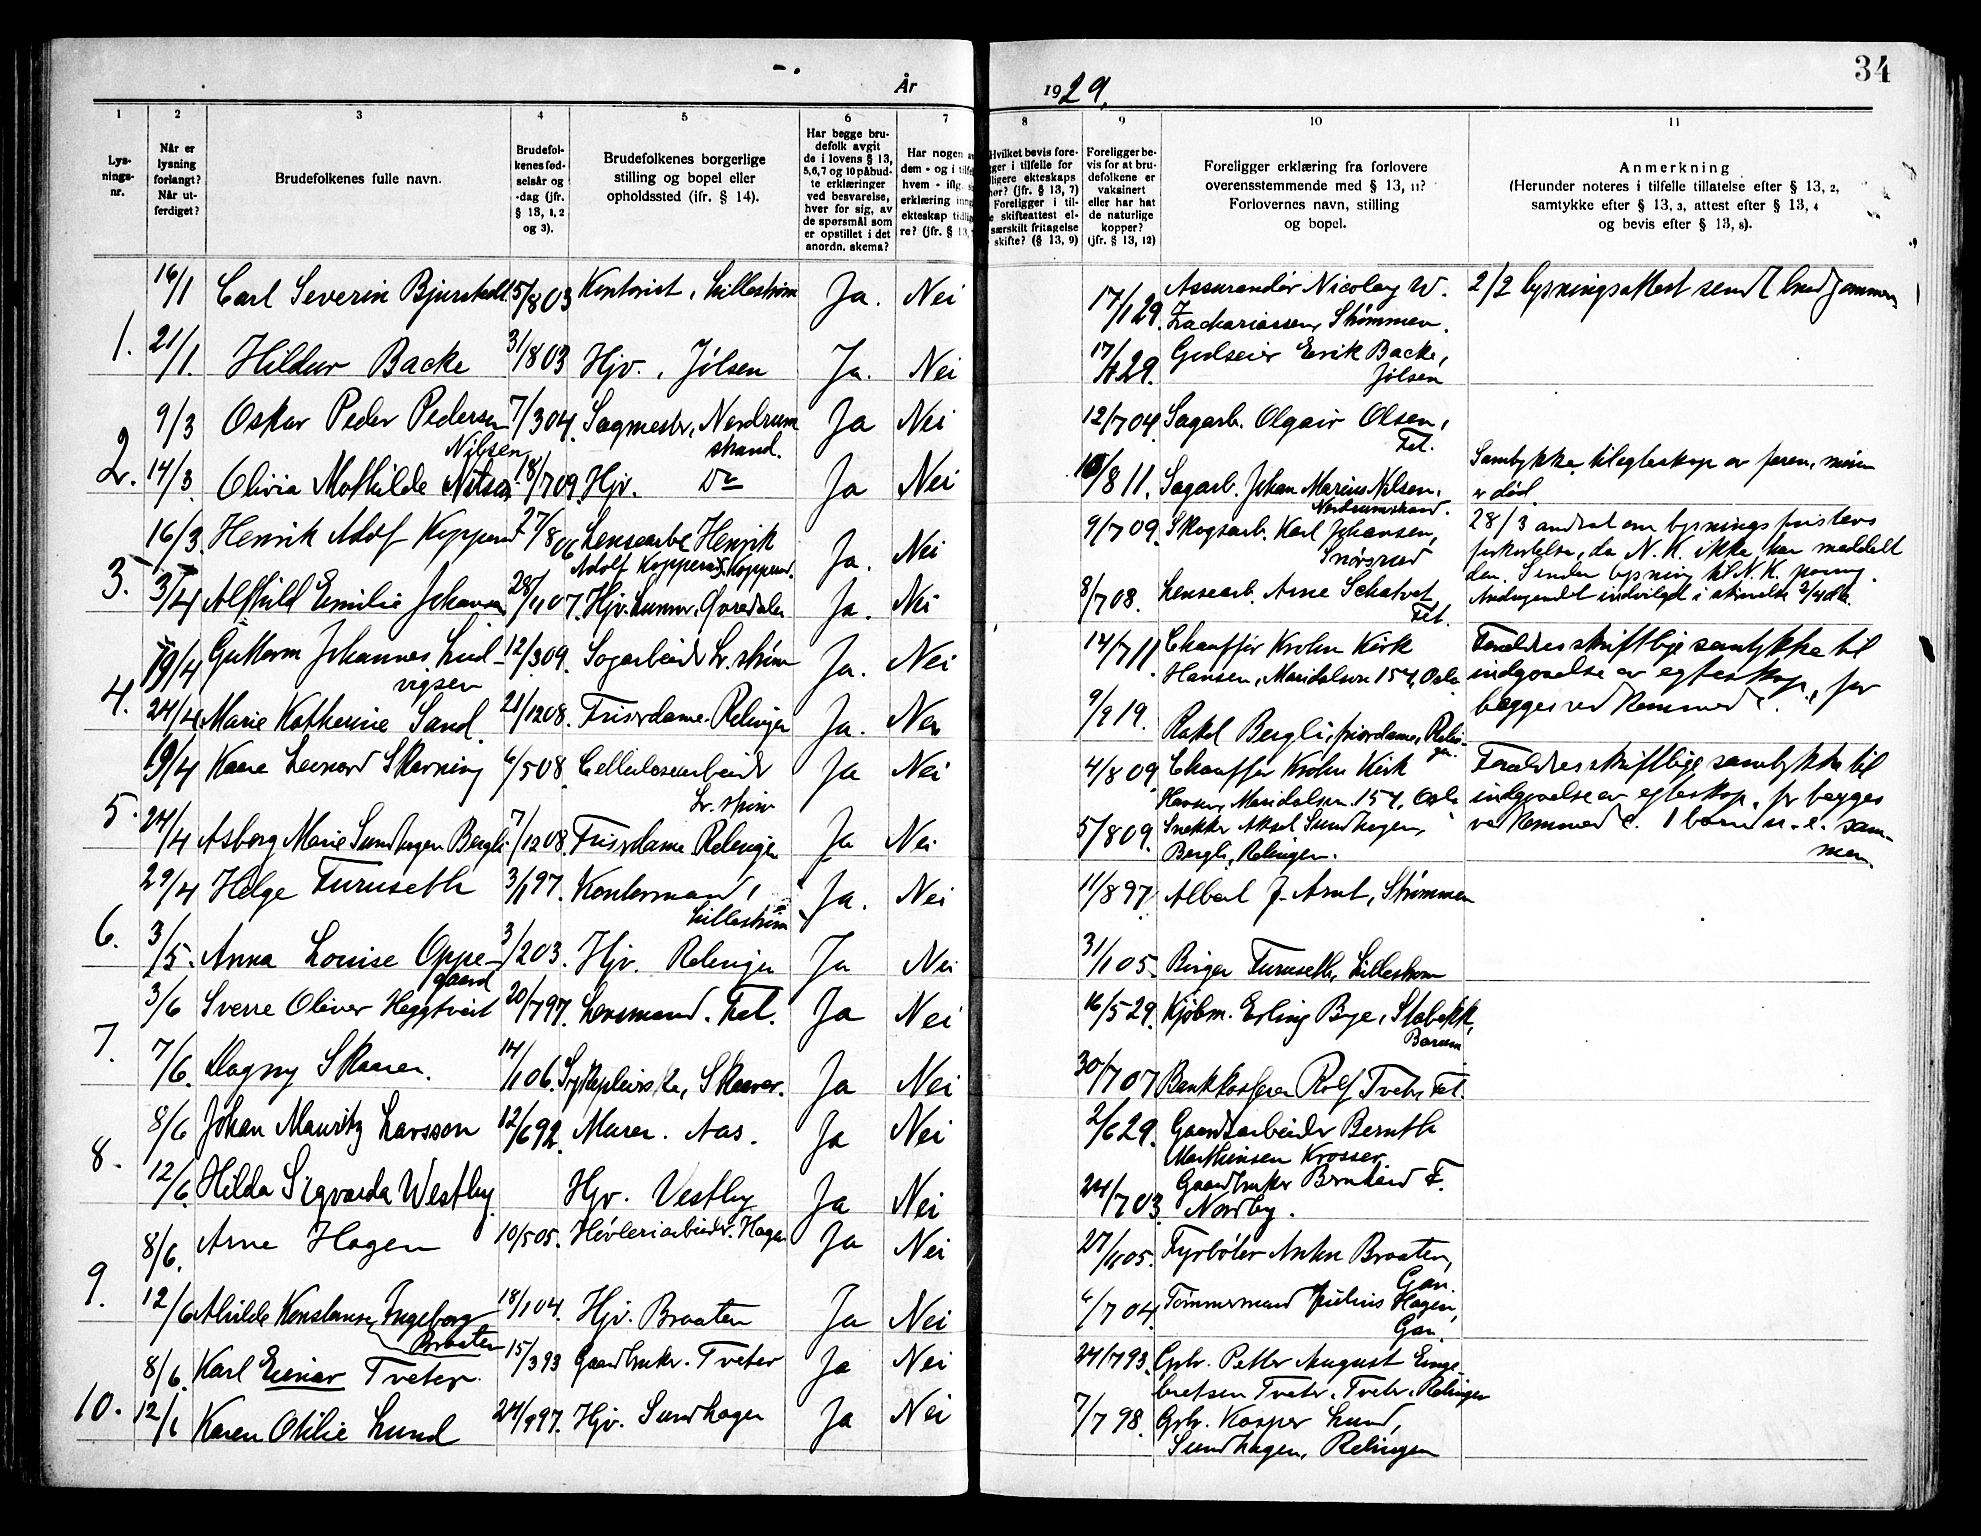 34
År 1929.
1
2
3
4
5
6
7
8
9
10
11
Lys-
nings-
nr.
Når er
lysning
forlangt?
Når ut-
ferdiget?
Brudefolkenes fulle navn.
Brudefol-
kenes fød-
selsår og
-dag (jfr.
§ 13, 1, 2
og 3).
Brudefolkenes borgerlige
stilling og bopel eller
opholdssted (ifr. § 14).
Har begge bru-
defolk avgit
de i lovens § 13,
5, 6, 7 og 10 påbud-
te erklæringer
ved besvarelse,
hver for sig, av
de spørsmål som
er opstillet i det
anordn. skema?
Har nogen a
dem - og i tilfe
hvem - iflg. s
erklæring inng
ekteskap tidlig
re? (jfr. § 13,
Hvilket bevis fore-
ger i tilfelle for
ligere ekteskaps
hør? (jfr. § 13, 7)
Foreligger i til-
e skifteattest el-
særskilt fritagelse
skifte? (§ 13, 9)
Foreligger be-
vis for at bru-
defolkene er
vaksinert
eller har hat
de naturlige
kopper?
(jfr. § 13, 12)
Foreligger erklæring fra forlovere
overensstemmende med § 13, 11?
Forlovernes navn, stilling
og bopel.
Anmerkning
(Herunder noteres i tilfelle tillatelse efter § 13, 2,
samtykke efter § 13, 3, attest efter § 13, 4
og bevis efter § 13, 8).
16/1 Carl Severin Bjurstedt 5/8 03 Kontorist, Lillestrøm Ja. Nei 17/1 29. Assurandør Nicolay W.
Zachariassen, Strømmen.
2/2 lysningsattest sendt
1. 21/1. Hildur Backe 31/8 03 Hjv., Jølsen Ja. Nei 17/1 29. Godseier Erik Backe,
Jølsen
9/3 Oskar Peder Pedersen 7/3 04. Sagmester, Nordrum
strand. Ja Nei 12/7 04. Sagarb. Olgair Olsen,
Fet.
2. 14/3. Olivia Mathilde Nilsen 18/7 09. Hjv. Do Ja Nei 10/8 11. Sagarb. Johan Marius Nilsen,
Nordrumstrand.
Samtykke til egteskap av faren, moren
er død
16/3. Henrik Adolf Kopperud 27/8 06 Lensearb. Henrik
Adolf Kopperud, Kopperud. Ja. Nei 9/7 09. Skogsarb. Karl Johansen,
Snørsrud
28/3 andrat om lysningsfristens
forkortelse, da N. K. ikke har meddelt
den. Sender lysning til N. K. paany.
Andragendet indvilget i skrivelse 2/4
3. 3/4 Alfhild Emilie Johansen 28/11 07. Hjv. Ja. Nei 8/7 08. Lensearb. Arne Schatvet
Fet.
19/4 Guttorm Johannes Lud-
vigsen 12/3 09. Sagarbeider Lr. strøm Ja. Nei 14/7 11. Chauffør Krohn Kirk
Hansen, Maridalsvn 157, Oslo
Forældres skriftlige samtykke til
indgaaelse av egteskap, for
begges vedkommende.
4. 24/4 Marie Katherine Sand. 21/12 08. Frisørdame. Relingen Ja. Nei 9/9 19. Rakel Bergli, frisørdame, Relin-
gen
19/4 Kaare Leonard Skarning 6/5 08. Cellulosearbeider
Lr. strøm Ja Nei 4/8 09. Chauffør Krohn Kirk
Hansen, Maridalsvn. 157, Oslo
Forældres skriftlige samtykke til
indgaaelse av egteskap, for begges
vedkommende. 1 barn u. e. sam-
men.
5. 24/4 Asborg Marie Sundhagen Bergli 7/12 08. Frisørdame Relingen Ja Nei 5/8 09. Snekker Aksel Sundhagen,
Bergli, Relingen.
29/4 Helge Furuseth 3/1 97. Kontormand,
Lillestrøm Ja. Nei 11/8 97. Albert J. Arnt, Strømmen
6. 3/5. Anna Louise Oppe-
gaard 3/2 03. Hjv. Relingen Ja Nei 31/1 05. Birger Furuseth, Lillestrøm
3/6 Sverre Oliver Heggtveit 20/7 97. Lensmand. Fet. Ja Nei 16/5 29. Kjøbm. Erling Bye, Stabekk,
Bærum
7. 7/6. Magny Skaarer. 14/1 06. Sykepleierske, Skaarer. Ja Nei 30/7 07 Bankkasserer Rolf Tveter, Fet.
8/6 Johan Mauritz Larsson 12/6 92. Murer. Aas. Ja Nei 2/6 29. Gaardsarbeider Bernth
Mathiesen Krosser
8. 12/6. Hilda Sigvarda Westby Hjv. Vestby Ja Nei 24/7 03. Gaardbruker F.
Nordby.
8/6. Arne Hagen 10/5 05. Høvleriarbeider. Hagen Ja Nei 27/11 05. Fyrbøter Anton Braaten,
Gan.
9. 12/6 Alvilde Konstanse Ingeborg
Braaten 18/1 04. Hjv. Braaten Ja Nei 6/7 04. Tømmermand Julius Hagen,
Gan.
8/6. Karl Einar Tveter. 15/3 93 Gaardbruker. Tveter Ja Nei 24/7 93. Grbr. Petter August Enge-
bretsen Tveter. Tveter. Relingen
10. 12/6 Karen Otilie Lund 24/9 97. Hjv. Sundhagen Ja Nei 7/7 98. Grbr. Kasper Lund,
Sundhagen, Relingen